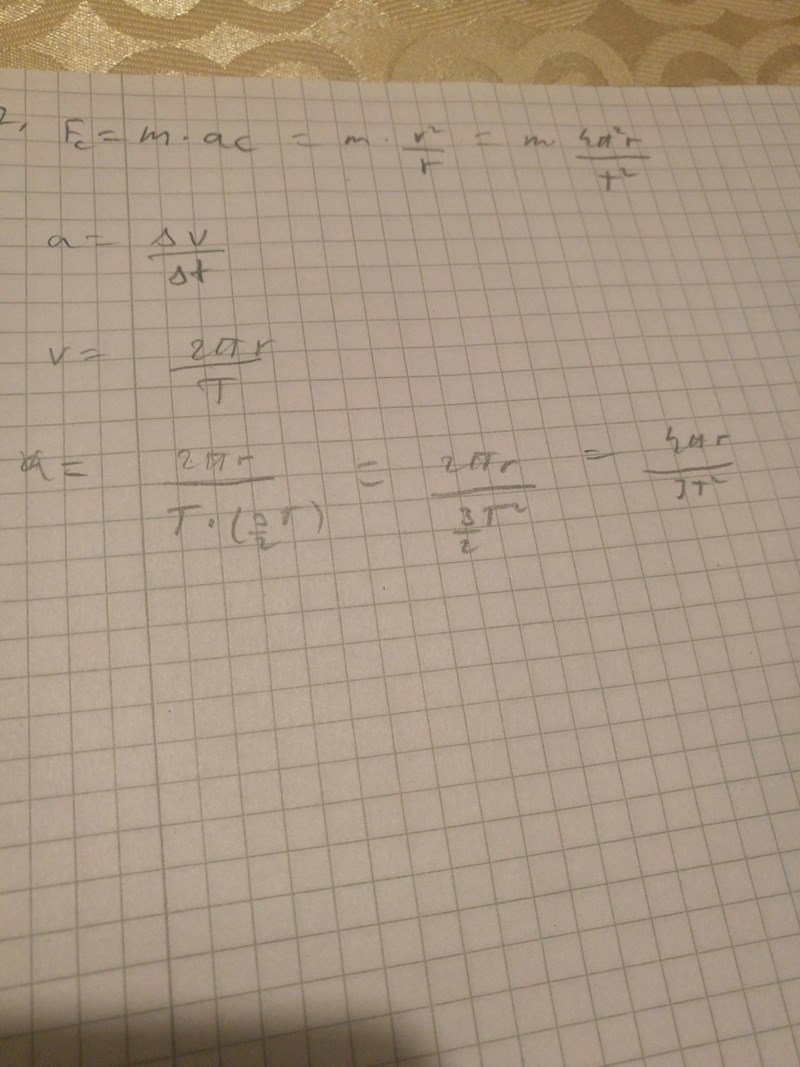 2, Fc = m · ac = m · v²/r = m · 4π²r/T²
a = Δv/Δt
v = 2πr/T
a = 2πr/(T · (3/2 T)) = 2πr/(3/2 T²) = 4πr/3T²